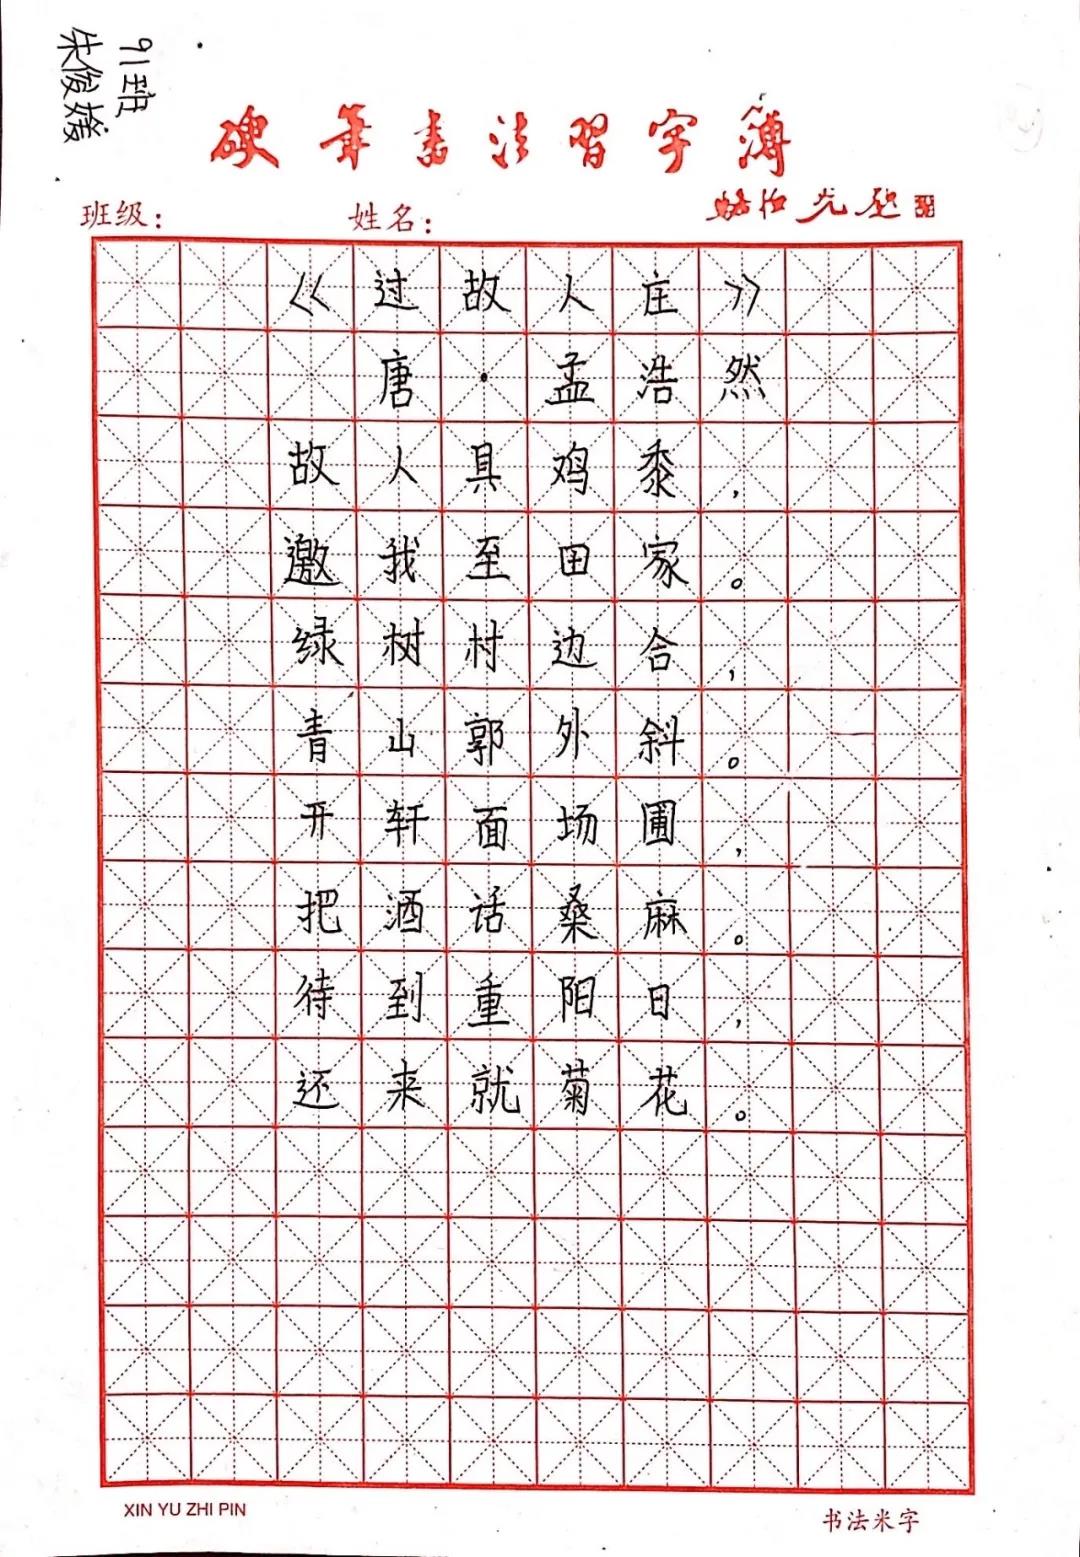 91班
朱俊嫒
硬笔书法习字薄
班级：
姓名：
《过故人庄》
唐·孟浩然
故人具鸡黍，
邀我至田家。
绿树村边合，
青山郭外斜。
开轩面场圃，
把酒话桑麻。
待到重阳日，
还来就菊花。
XIN YU ZHI PIN
书法米字